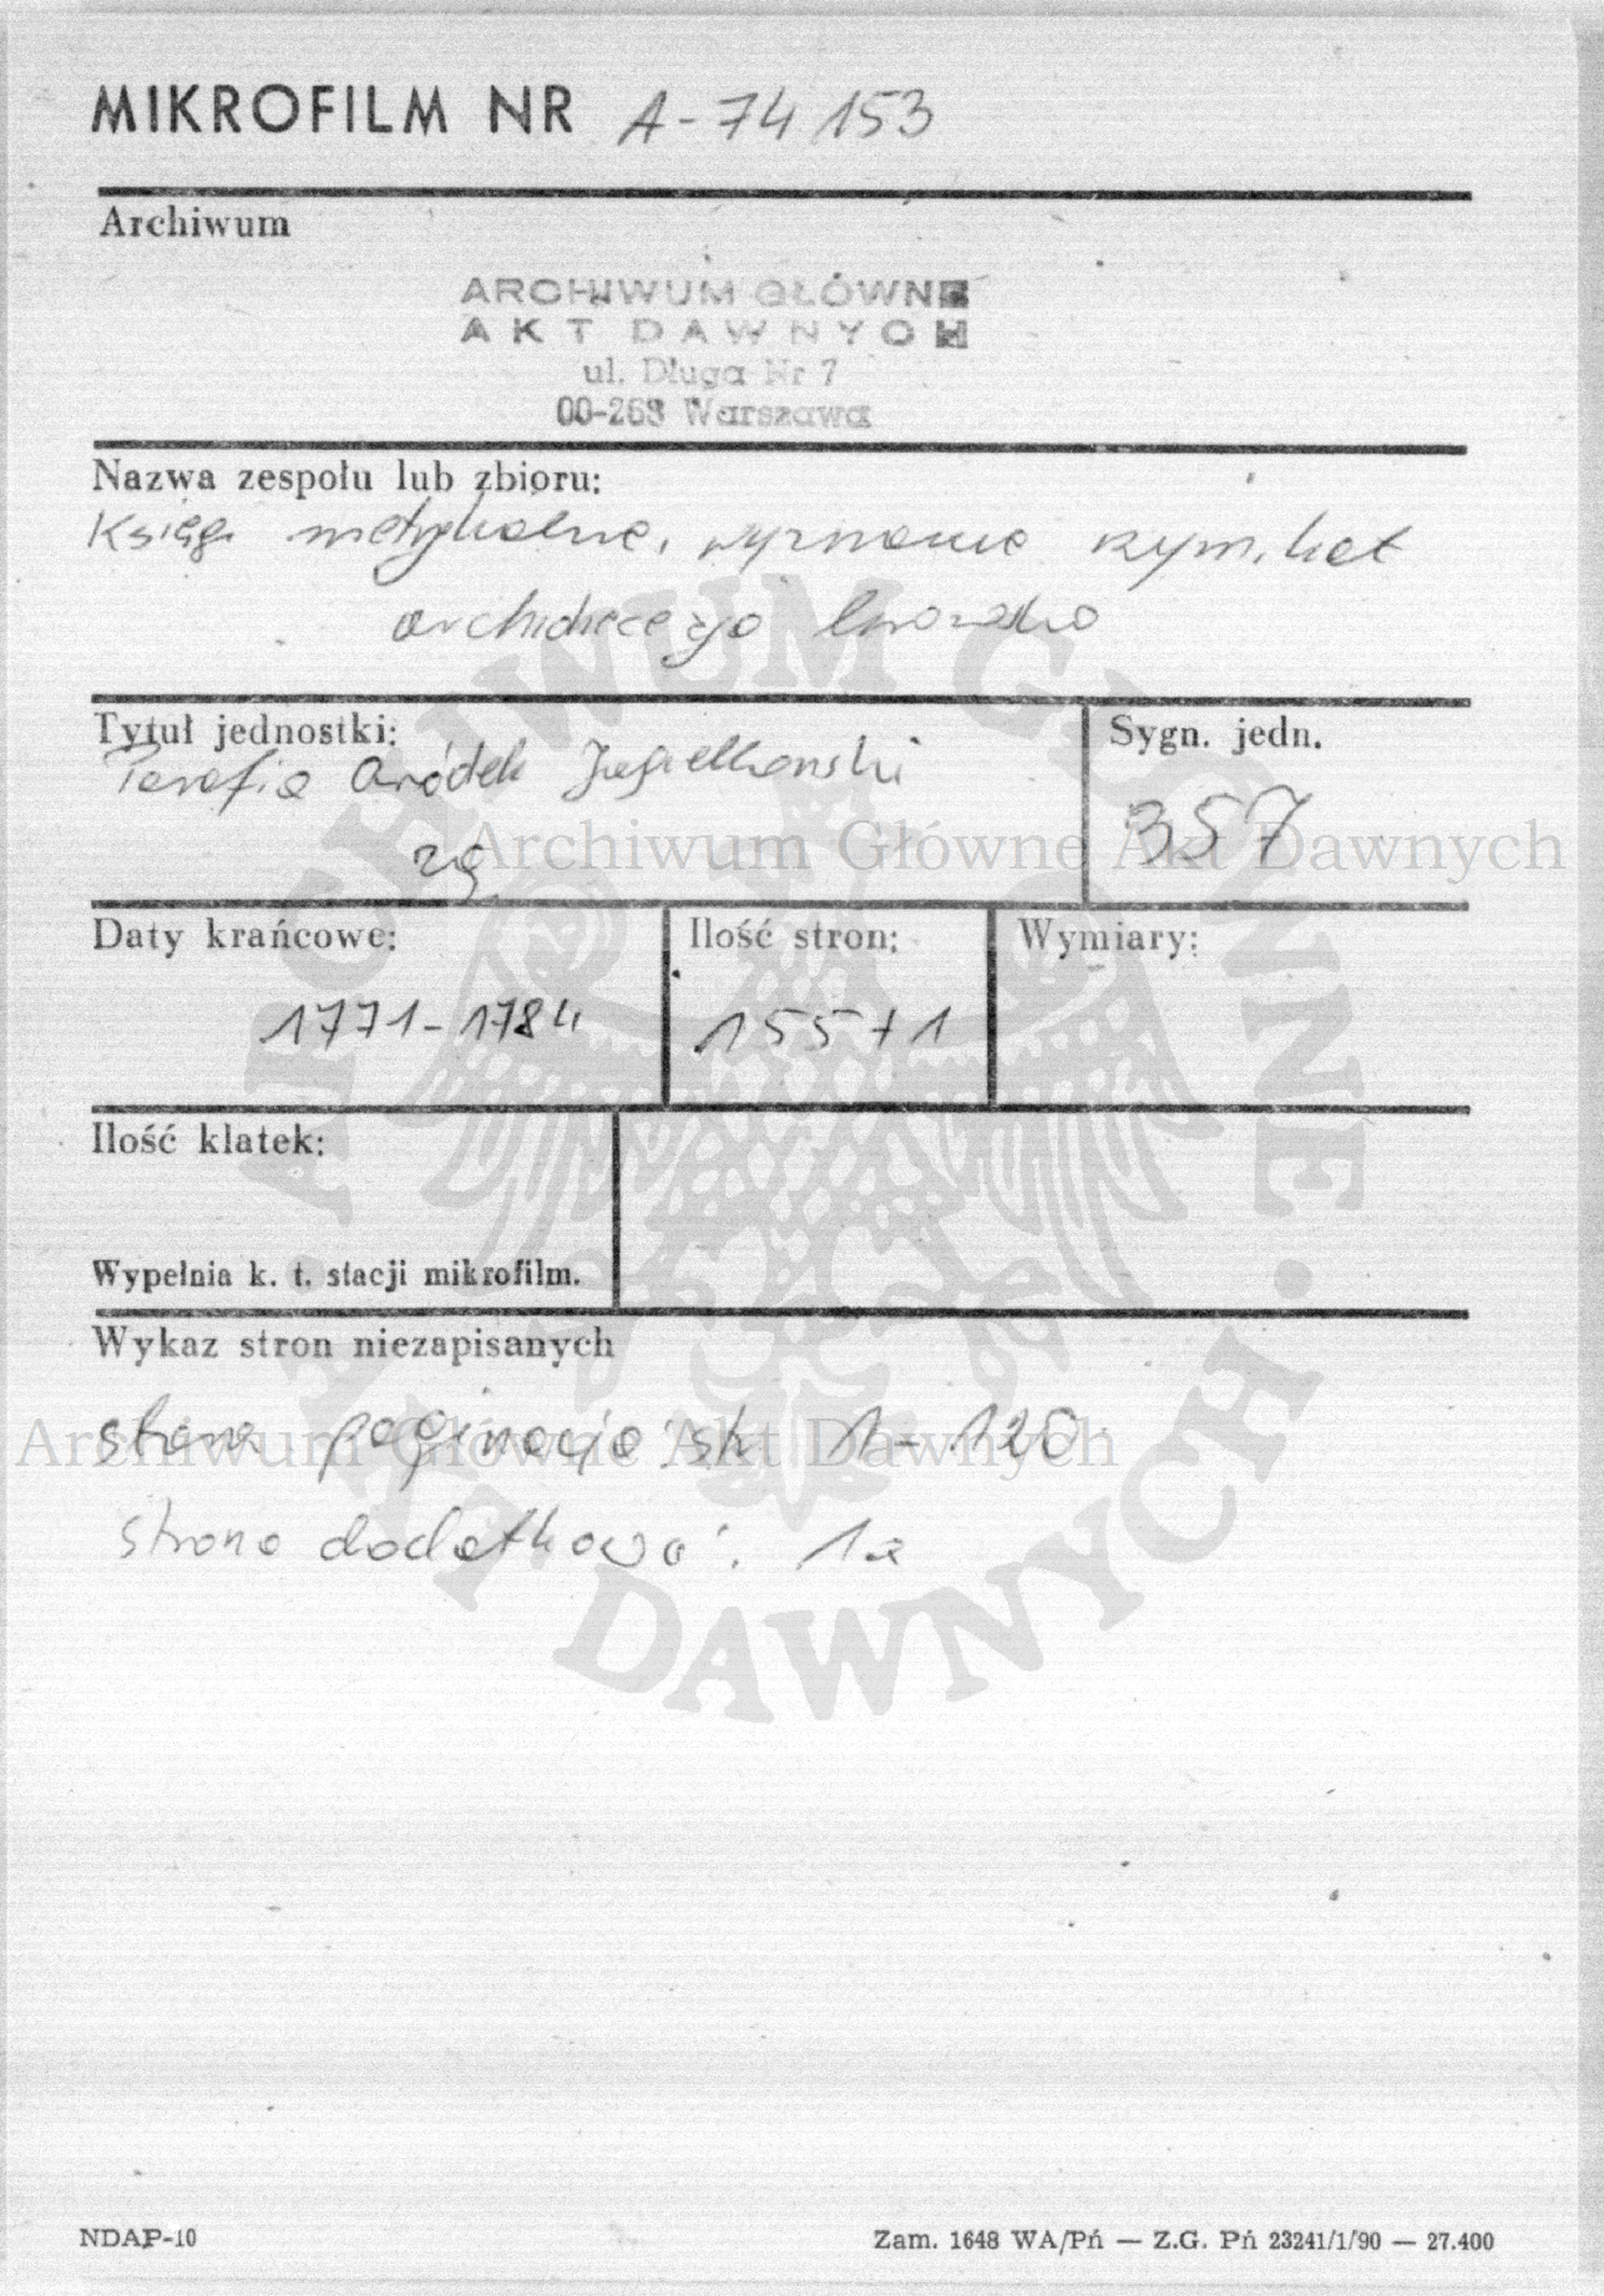 MIKROFILM NR A-74153
Archiwum
ARCHIWUM GŁÓWNE
AKT DAWNYCH
ul. Długa Nr 7
00-263 Warszawa
Nazwa zespołu lub zbioru:
Księgi metrykalne, wyznanie rzym. kat
archidiecezja lwowska
Tytuł jednostki:
Parafia Gródek Jagielloński
zg
Sygn. jedn.
357
Archiwum Główne Akt Dawnych
Daty krańcowe:
1771-1784
Ilość stron:
155+1
Wymiary:
Ilość klatek:
Wypełnia k. t. stacji mikrofilm.
Wykaz stron niezapisanych
stara paginacja: sk 1-120
Archiwum Główne Akt Dawnych
strona dodatkowa: 1a
ARCHIWUM GŁÓWNE • AKT DAWNYCH •
NDAP-10
Zam. 1648 WA/Pń — Z.G. Pń 23241/1/90 — 27.400